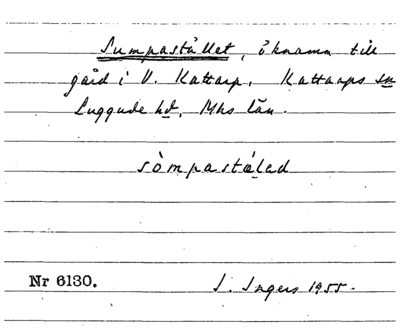 Sumpastället, öknamn till
gård i V. Kattarp, Kattarps sn
Luggude hd, Mhs län.
sòmpastǽlad
Nr 6130.
I. Ingers 1955.